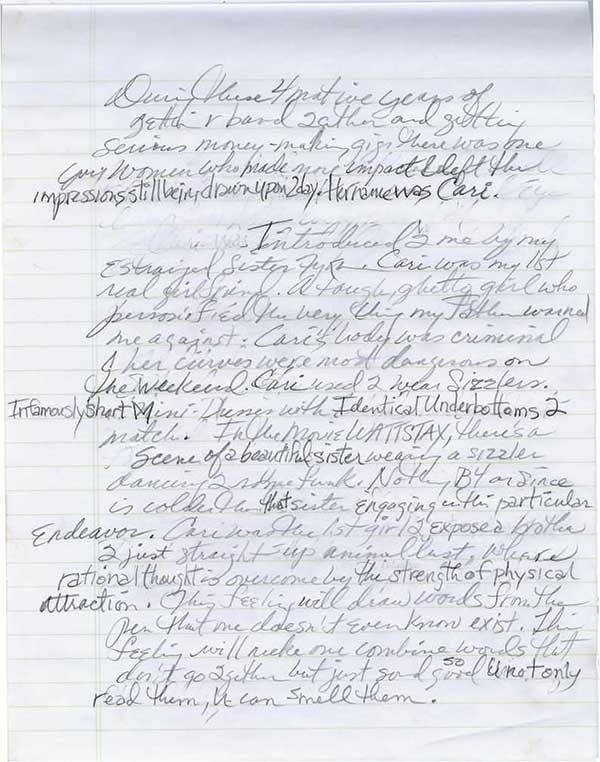 During these 4mative years of
gettin r band 2gether and getting
serious money-making gigs there was one
young Women who made more impact & left the
impressions still being drawn upon 2day. Her name was Cari.
Cari was Introduced 2 me by my
estranged sister Tyka. Cari was my 1st
real girlfriend. A tough, ghetto girl who
personified the very thing my Father warned
me against. Cari's body was criminal
& her curves were most dangerous on
the weekend. Cari used 2 wear Sizzlers.
Infamously Short Mini-Dresses with Identical Underbottoms 2
match. In the Movie WATTSTAX, there's a
scene of a beautiful sister wearing a sizzler
dancing 2 some funk. Nothing B4 or since
is colder than that sister engaging in this particular
Endeavor. Cari was the 1st girl 2 expose a brotha
2 just straight-up animal lust, where
rational thought is overcome by the strength of physical
attraction. This feeling will draw words from the
pen that one doesn't even know exist. This
feeling will make one combine words that
don't go 2gether but just sound so good U not only
read them, U can smell them.